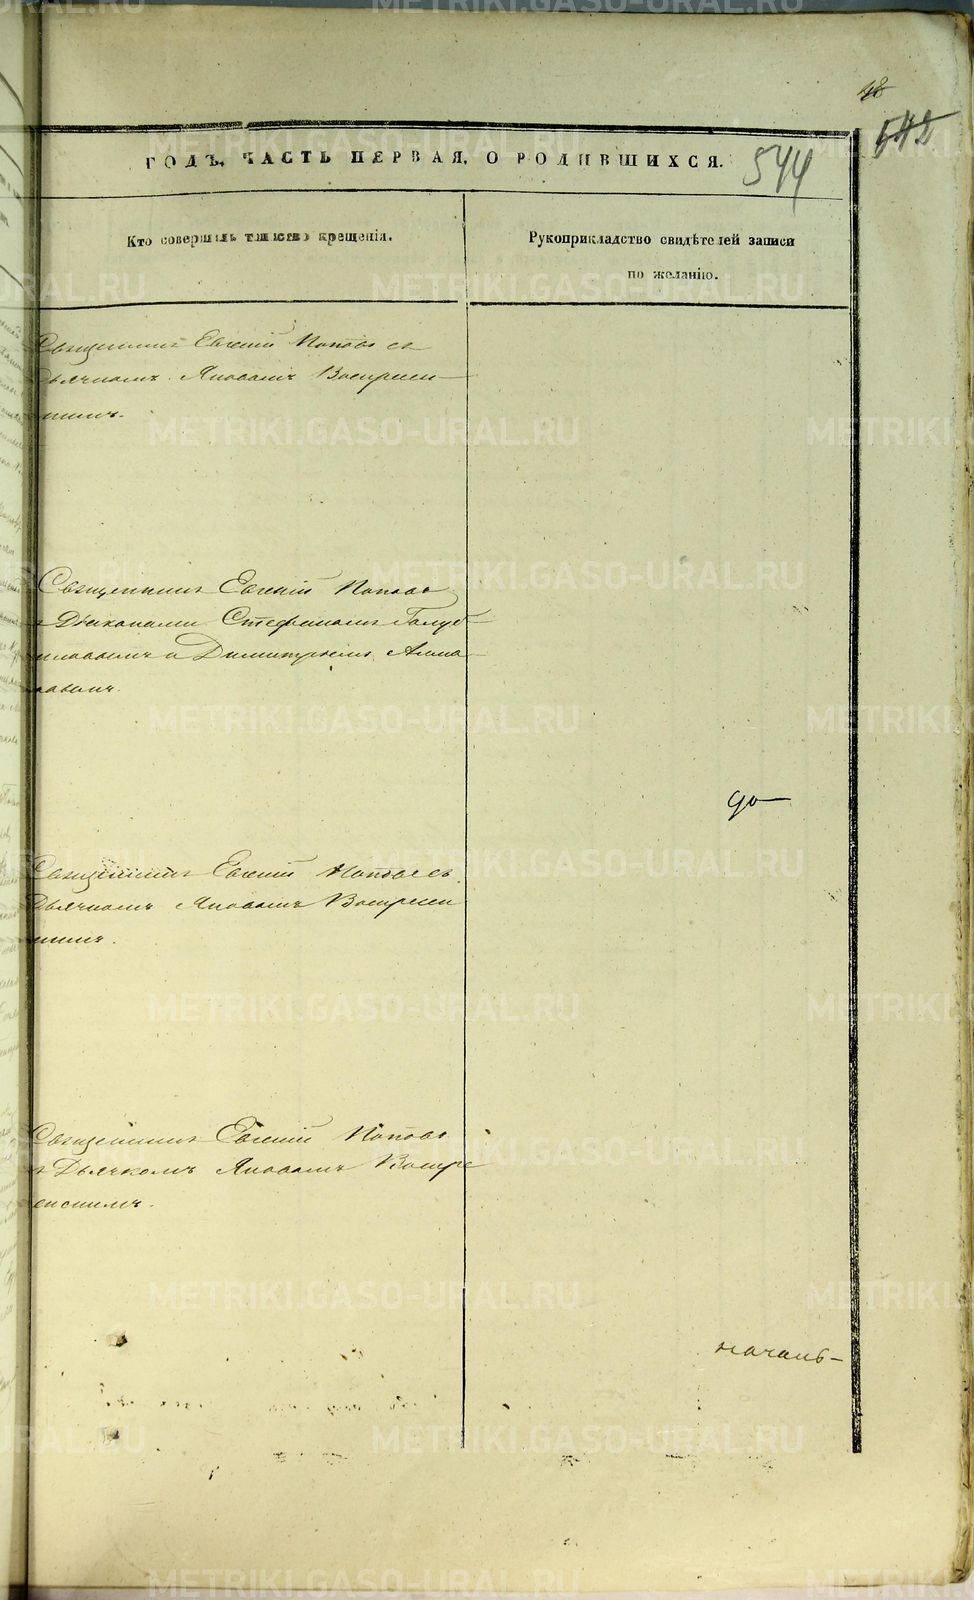 48
542
ГОДЪ, ЧАСТЬ ПЕРВАЯ, О РОДИВШИХСЯ.
544
Кто совершилъ таинство крещенія.
Рукоприкладство свидѣтелей записи
по желанію.
Священникъ Евгеній Поповъ съ
Дьячкомъ Яковомъ Воскресен-
скимъ.
Священникъ Евгеній Поповъ
съ Дьяконами Стефаномъ Голуб-
Димитріемъ
до-
Священникъ Евгеній Поповъ съ
Дьячкомъ Яковомъ Воскресен
скимъ.
Священникъ Евгеній Поповъ
съ Дьячкомъ Яковомъ Воскре
сенскимъ.
началь-
METRIKI.GASO-URAL.RU